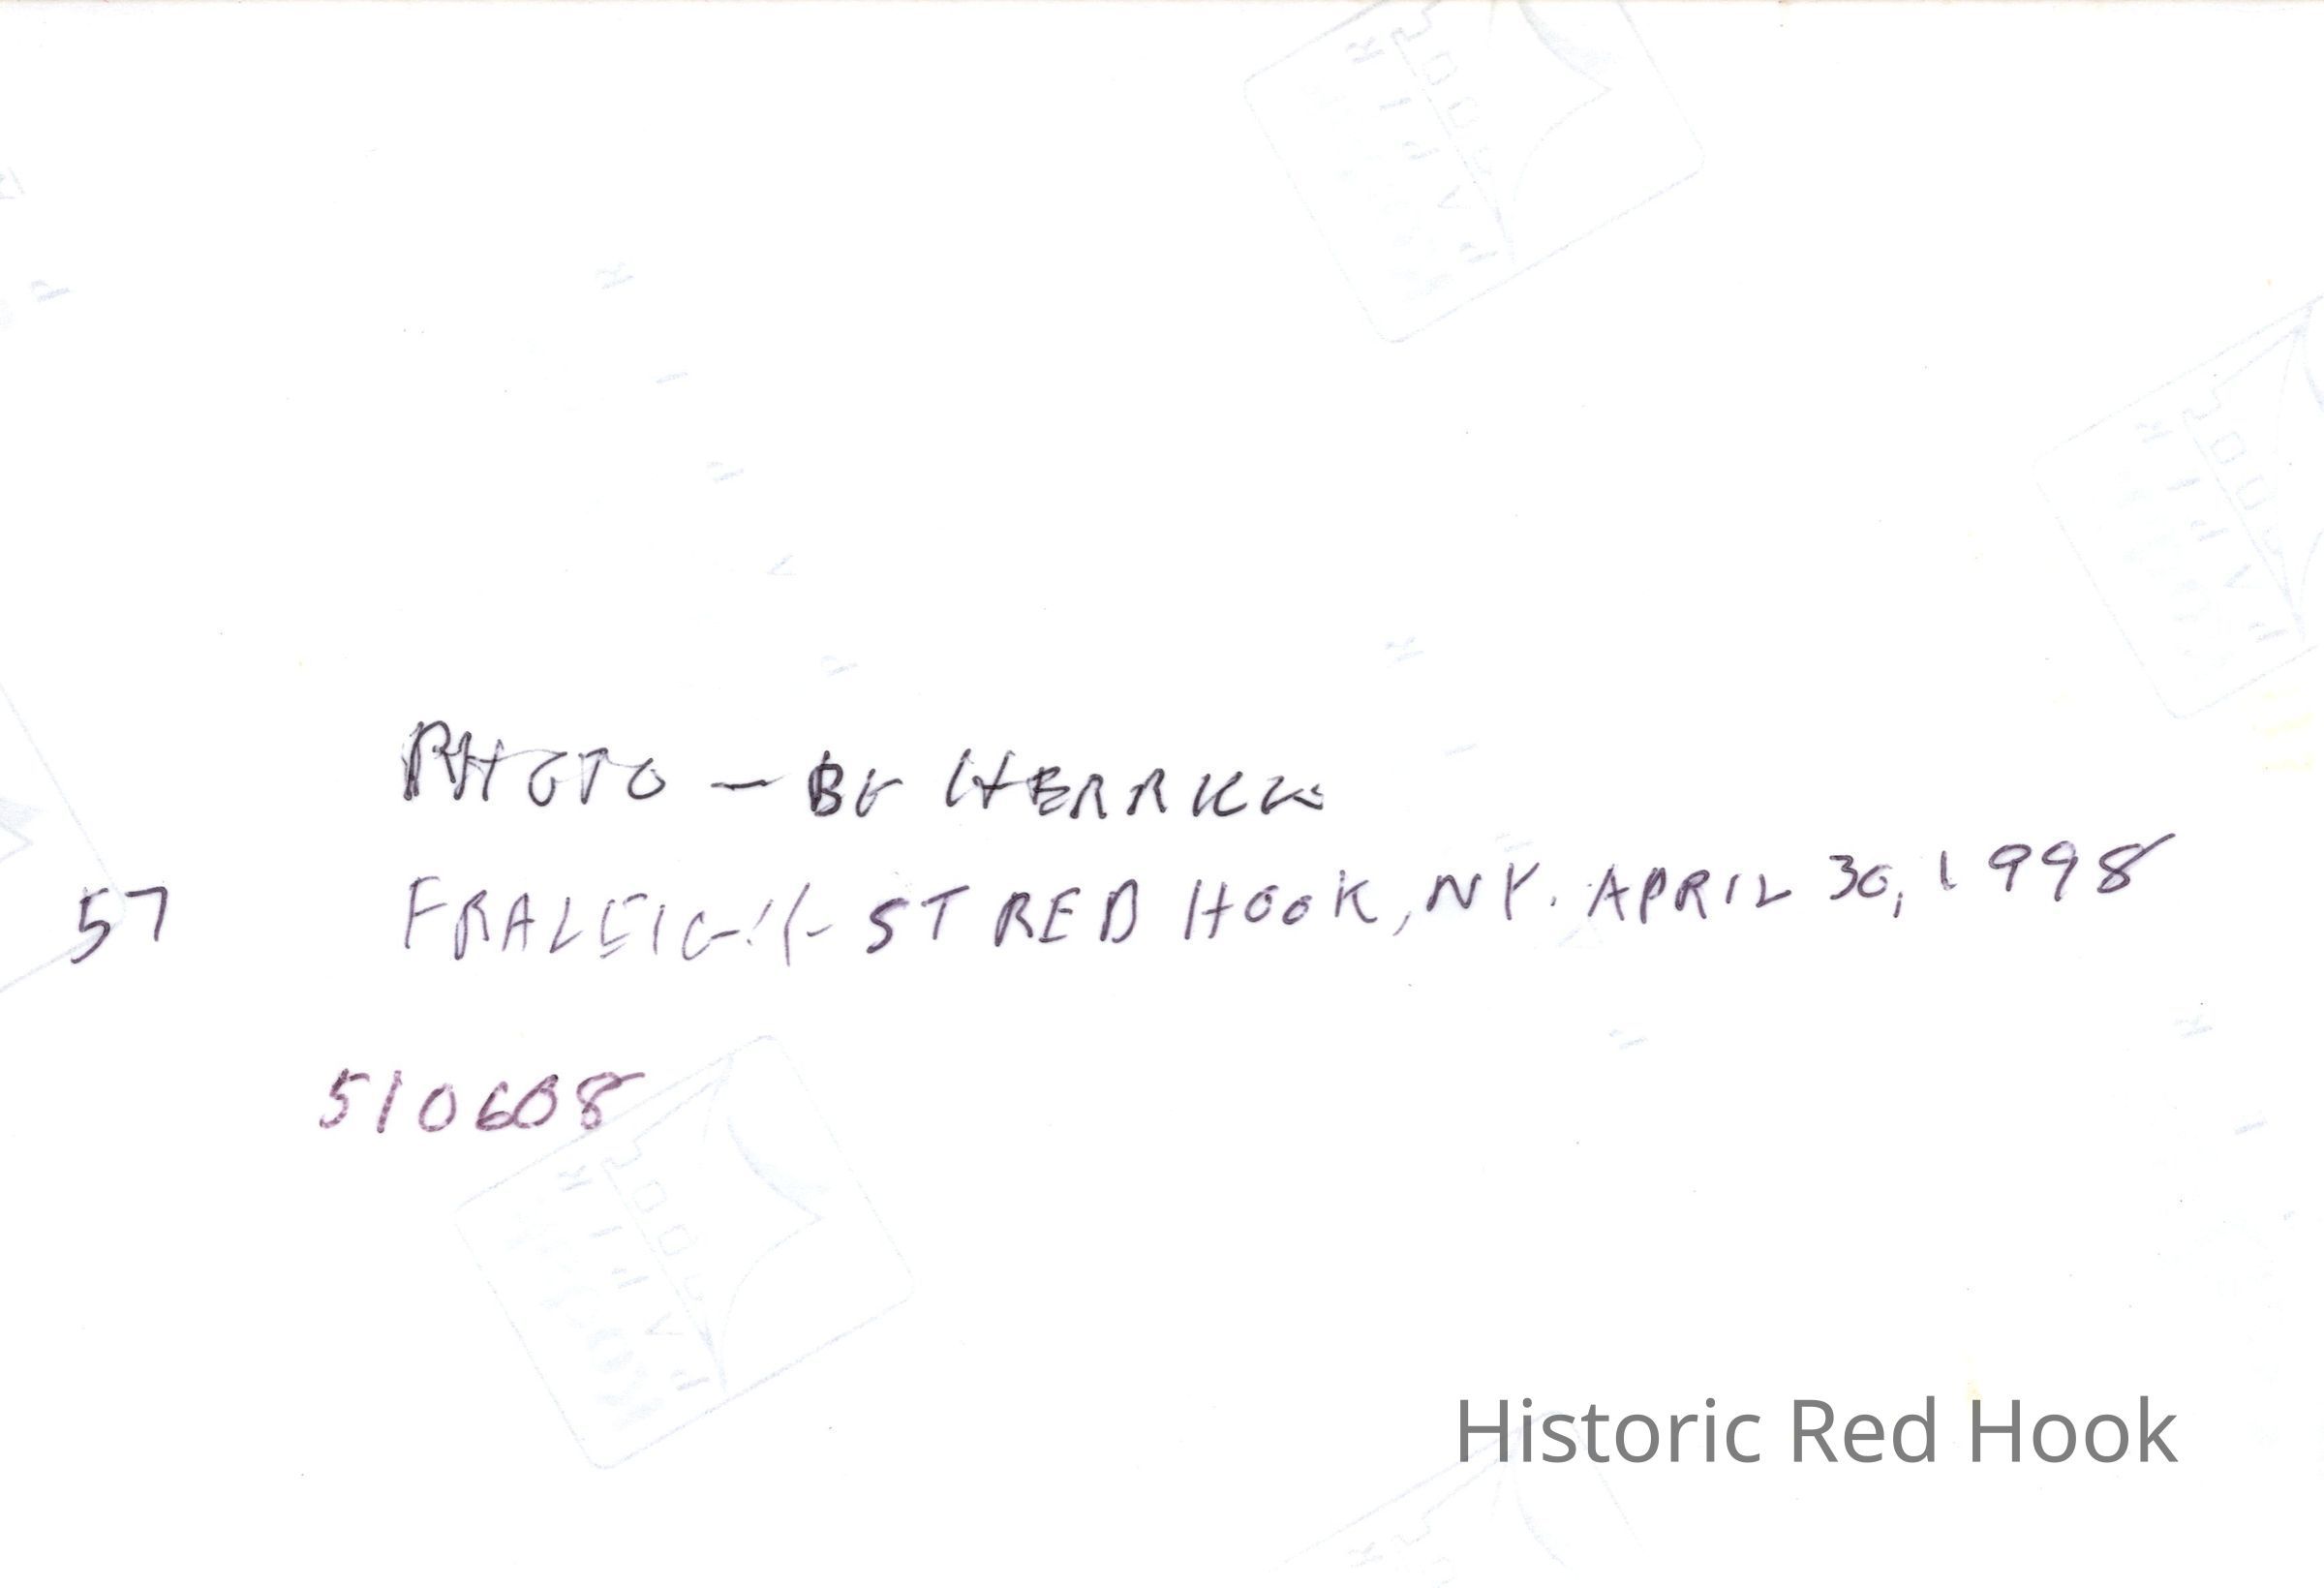 PHOTO — BY HERRICK
57 FRALEIGH ST RED HOOK, NY. APRIL 30, 1998
510608
Historic Red Hook